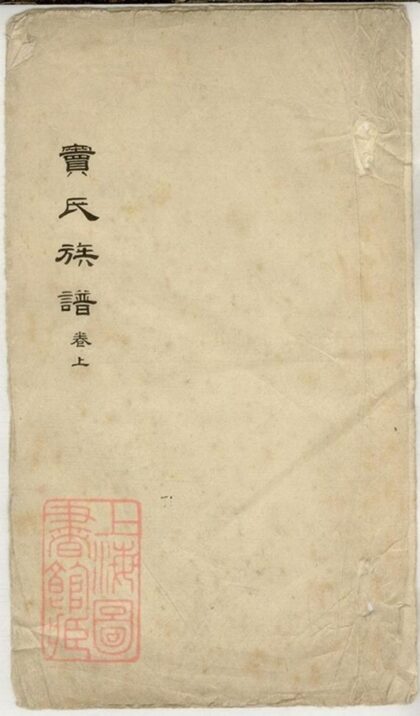 竇氏族譜
卷上
上海圖
書館藏